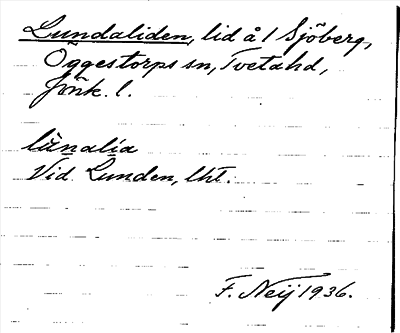 Lundaliden, lid å 1 Sjöberg,
Öggestorps sn, Tveta hd,
Jönk. l.
lùnalía
Vid Lunden, lht.
F. Neij 1936.